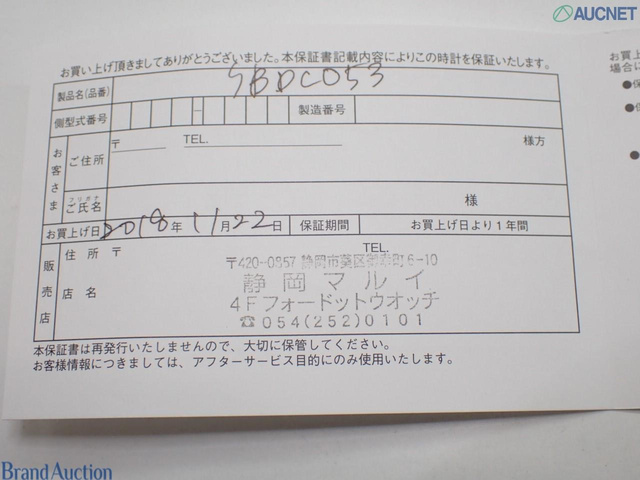 AUCNET
お買い上げ頂きましてありがとうございました。本保証書記載内容によりこの時計を保証いたします。
製品名(品番) SBDC053
側型式番号 製造番号
お客さま
ご住所 〒 TEL. 様方
フリガナ
ご氏名 様
お買上げ日 2018年11月22日 保証期間 お買上げ日より1年間
販売店
住所 〒 TEL.
〒420-0857 静岡市葵区御幸町6-10
店名 静岡マルイ
4Fフォードットウオッチ
☎054(252)0101
本保証書は再発行いたしませんので、大切に保管してください。
お客様情報につきましては、アフターサービス目的にのみ使用いたします。
お買上
場合に
●保
Brand Auction